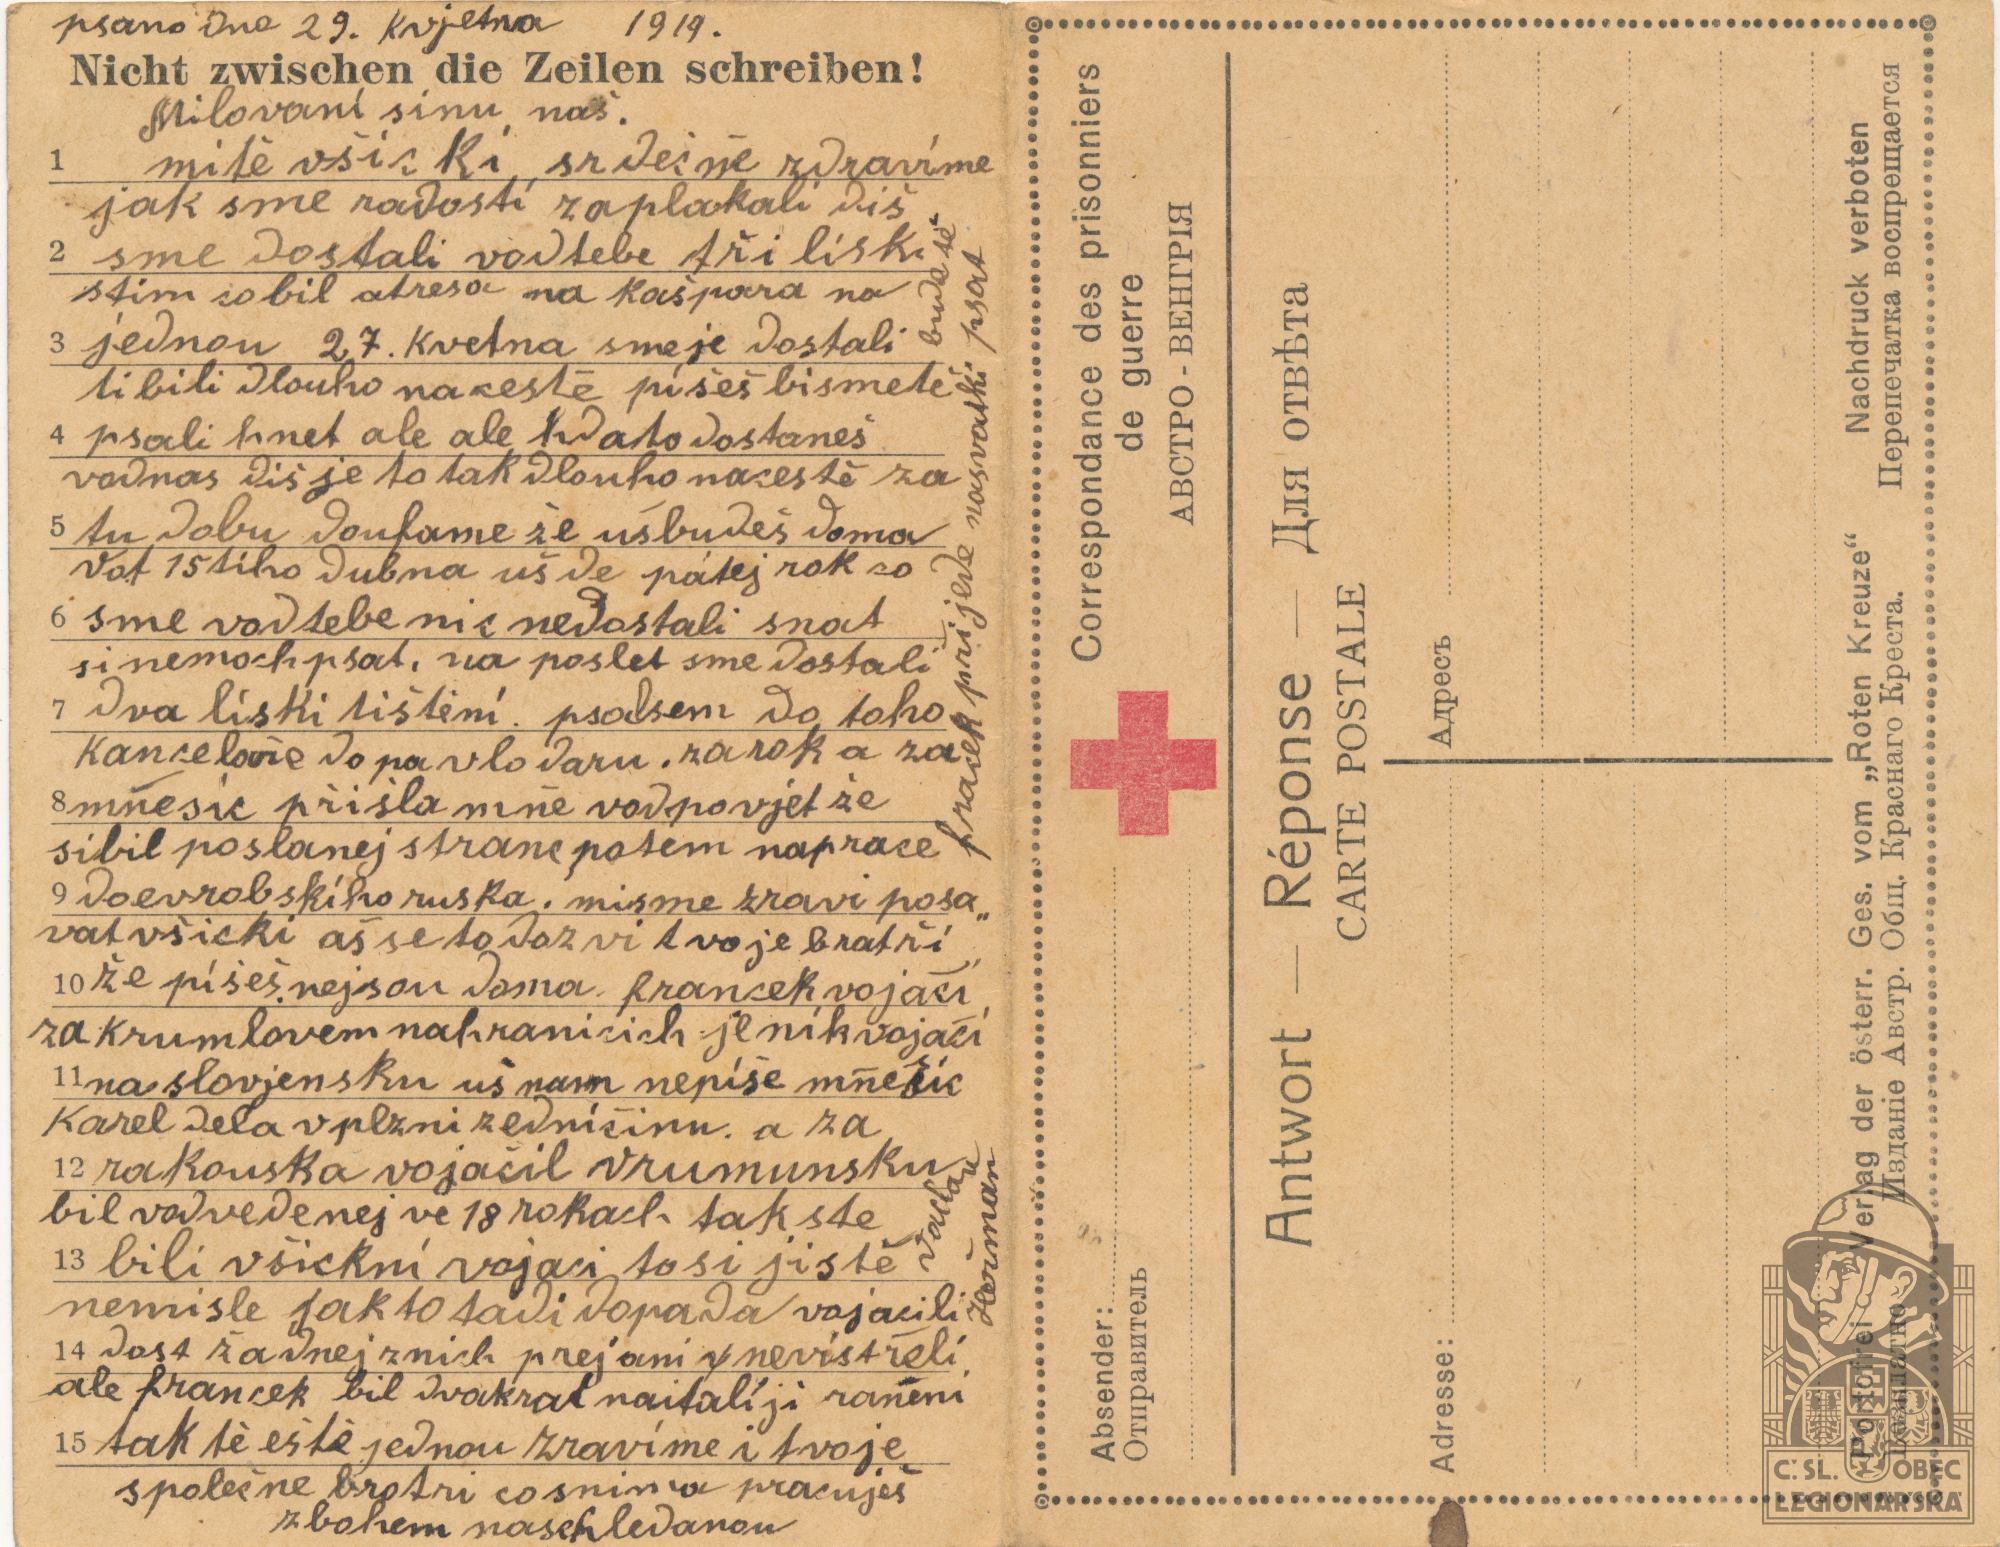 psano dne 29. kvjetna 1919.
Nicht zwischen die Zeilen schreiben!
Milovaní sinu náš.
1 mitě všicki srdečně zdravíme
jak sme radostí zaplakali diš
2 sme dostali vodtebe tři lískí
stim co bil atresa na kašpara na
3 jednou 27. kvetna smeje dostali
ti bili dlouho nacestě píšeš bismetě
4 psali hnet ale ale hdato dostaneš
vodnas diš je to tak dlouho nacestě za
5 tu dobu doufame že ušbudeš doma
vot 15tiho dubna uš de pátej rok co
6 sme vodtebe nic nedostali snat
si nemoch psat. na poslet sme dostali
7 dva lískí tištění. psalsem do toho
kancelaře do pavlodaru. za rok a za
8 mňesíc přišla mňe vodpovjet že
sibil poslanej stranc potem naprace
9 doevrobskího ruska. misme zravi posa„
vat všicki aš se to dozví tvoje bratří
10 že píšeš nejsou doma. francek vojačí
za krumlovem nahranicich jeník vojačí
11 na slovjensku uš nam nepíše mňesíc
Karel dela v plzni zedničinu. a za
12 rakouska vojačil vrumunsku
bil vodvedenej ve 18 rokach tak ste
13 bili všickní vojaci to si jistě
nemisle jak to tadi dopada vojacili
14 dost žadnej znich prej ani v nevistřelí
ale francek bil dvakrat naitalíji raněni
15 tak tě eště jednou zravíme i tvoje
společne bratri co snima pracuješ
zbohem naschledanou
fracek prijede nasvatki psat
bude tě
Vaclav
Heřman
Correspondance des prisonniers
de guerre
АВСТРО-ВЕНГРІЯ
Absender:
Отправитель
Antwort — Réponse — Для отвѣта
CARTE POSTALE
Адресъ
Adresse:
Portofrei Verlag der österr. Ges. vom „Roten Kreuze“ Nachdruck verboten
Безплатно Изданіе Австр. Общ. Краснаго Креста. Перепечатка воспрещается
Č. SL. OBEC
LEGIONÁŘSKÁ